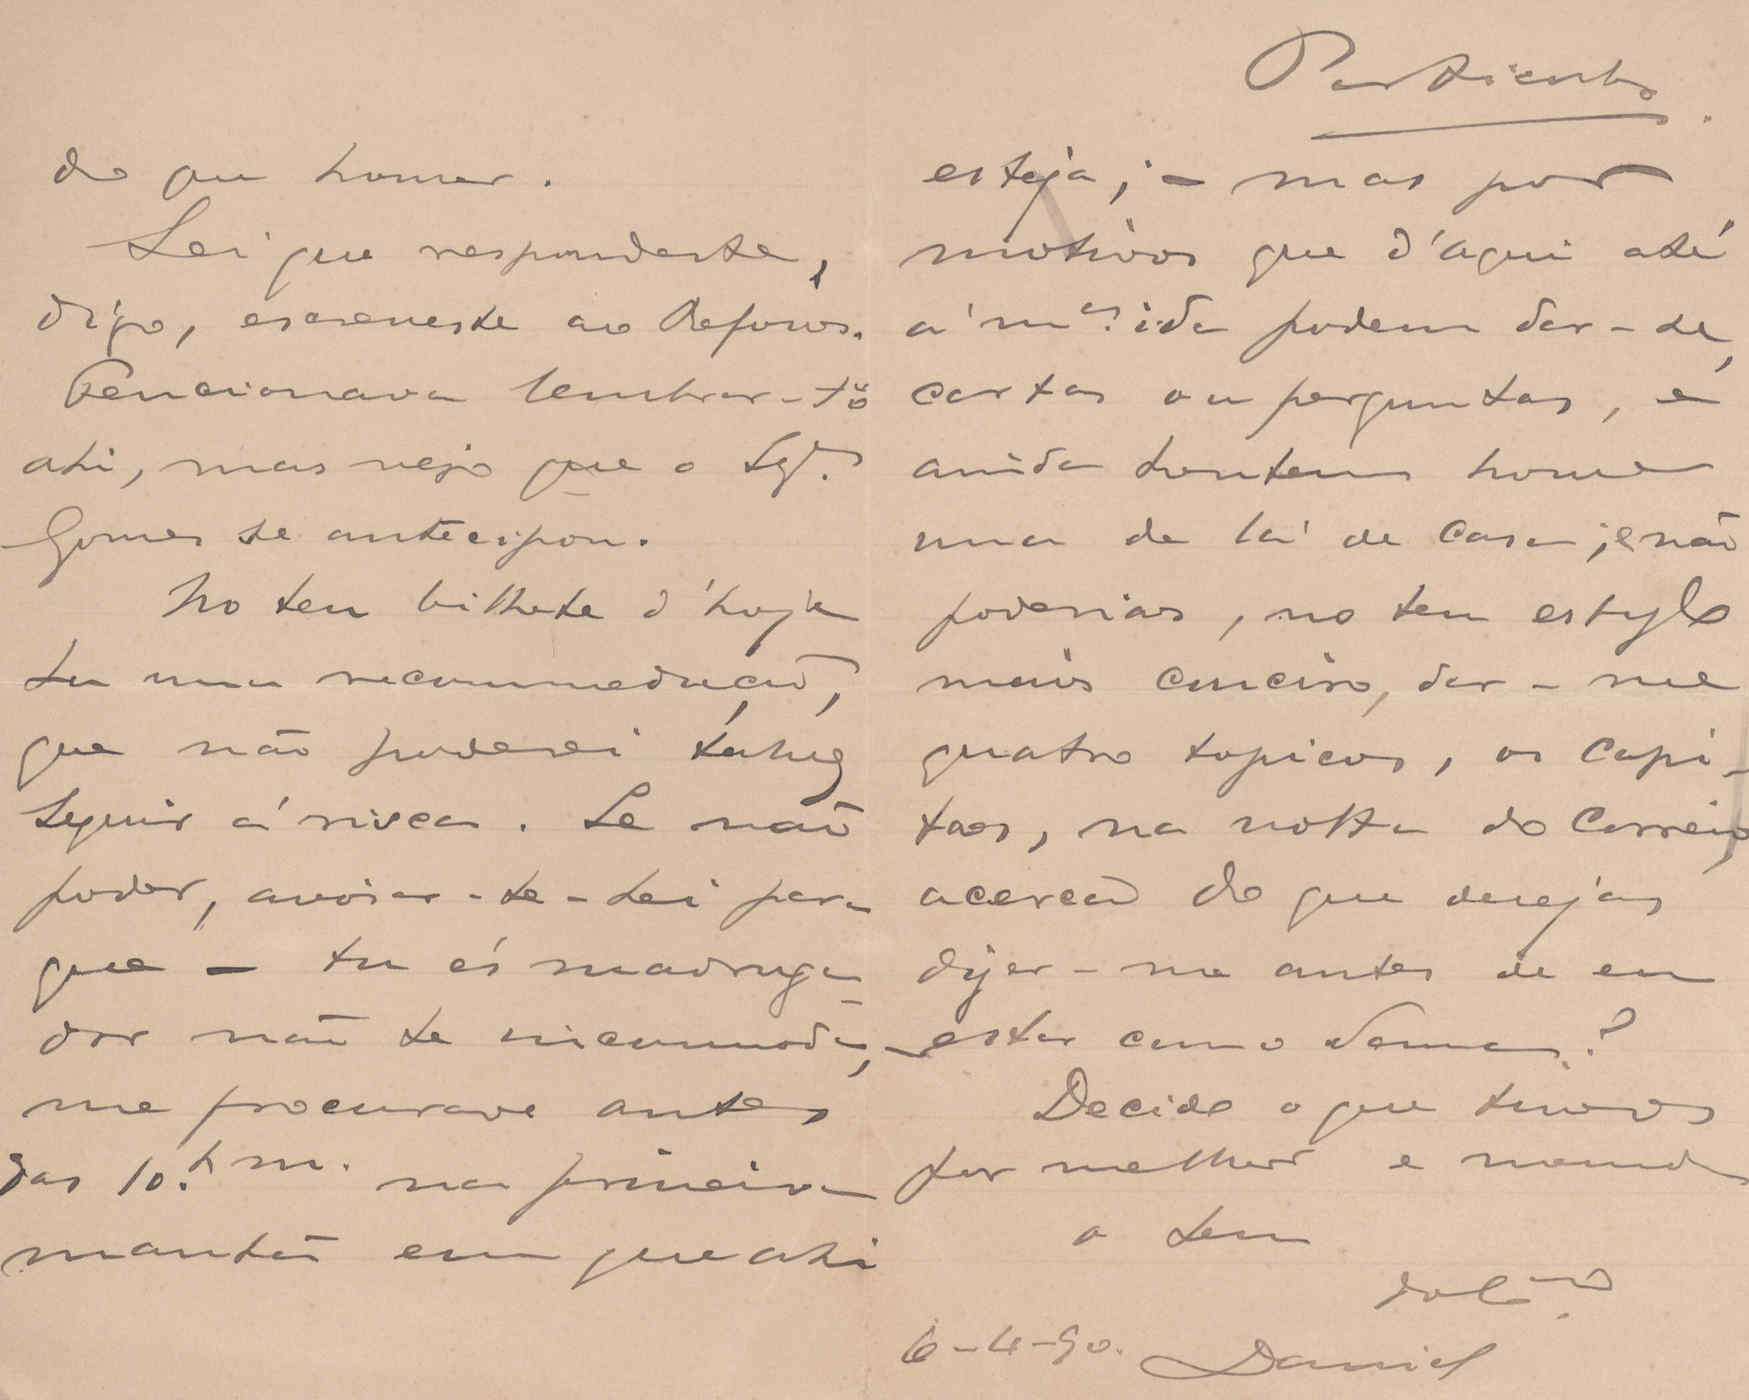 do que houver.
Sei que respondeste,
digo, escreveste ao Refoios.
Tencionava lembrar-t'o
ahi, mas vejo que o
Gomes se antecipou.
No teu bilhete d'hoje
há uma recommedação,
que não poderei talvez
seguir á risca. Se não
poder, avisar-te-hei para
que — tu és madruga-
dor não te incommoda,
me procurares antes
das 10.h m. na primeira
manhã em que ahi
Particular.
esteja; — mas por
motivos que d'aqui até
á m.ª ida podem dar-se,
cartas ou perguntas, e
ainda hontem houve
uma de lá de casa; e não
poderias, no teu estylo
mais conciso, dar-me
quatro topicos, os capi-
taes, na volta do Correio,
acerca do que desejas
dizer-me antes de eu
estar com o
Decide o que tiveres
por melhor e manda
o teu
Daniel
6-4-90.